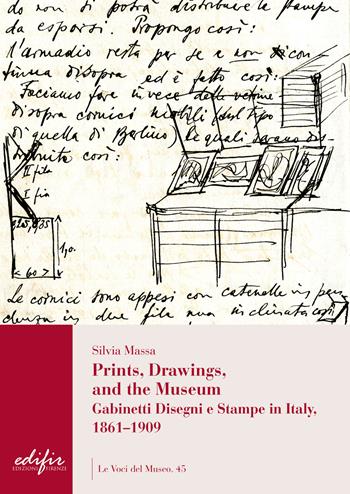 do non si potrà distribuire le stampe
da esporsi. Propongo così:
l'armadio resta per se e non si con
tinua disopra ed è fatto così:
Facciamo fare invece delle vetrine
disopra cornici mobili (sul tipo
di quella di Berlino) le quali saranno
così:
I fila
I fila
1,0.
< 60 >
Le cornici sono appesi con catenelle in pen
denza in due file una inclinata così
Silvia Massa
Prints, Drawings,
and the Museum
Gabinetti Disegni e Stampe in Italy,
1861–1909
edifir
EDIZIONI FIRENZE
Le Voci del Museo. 45